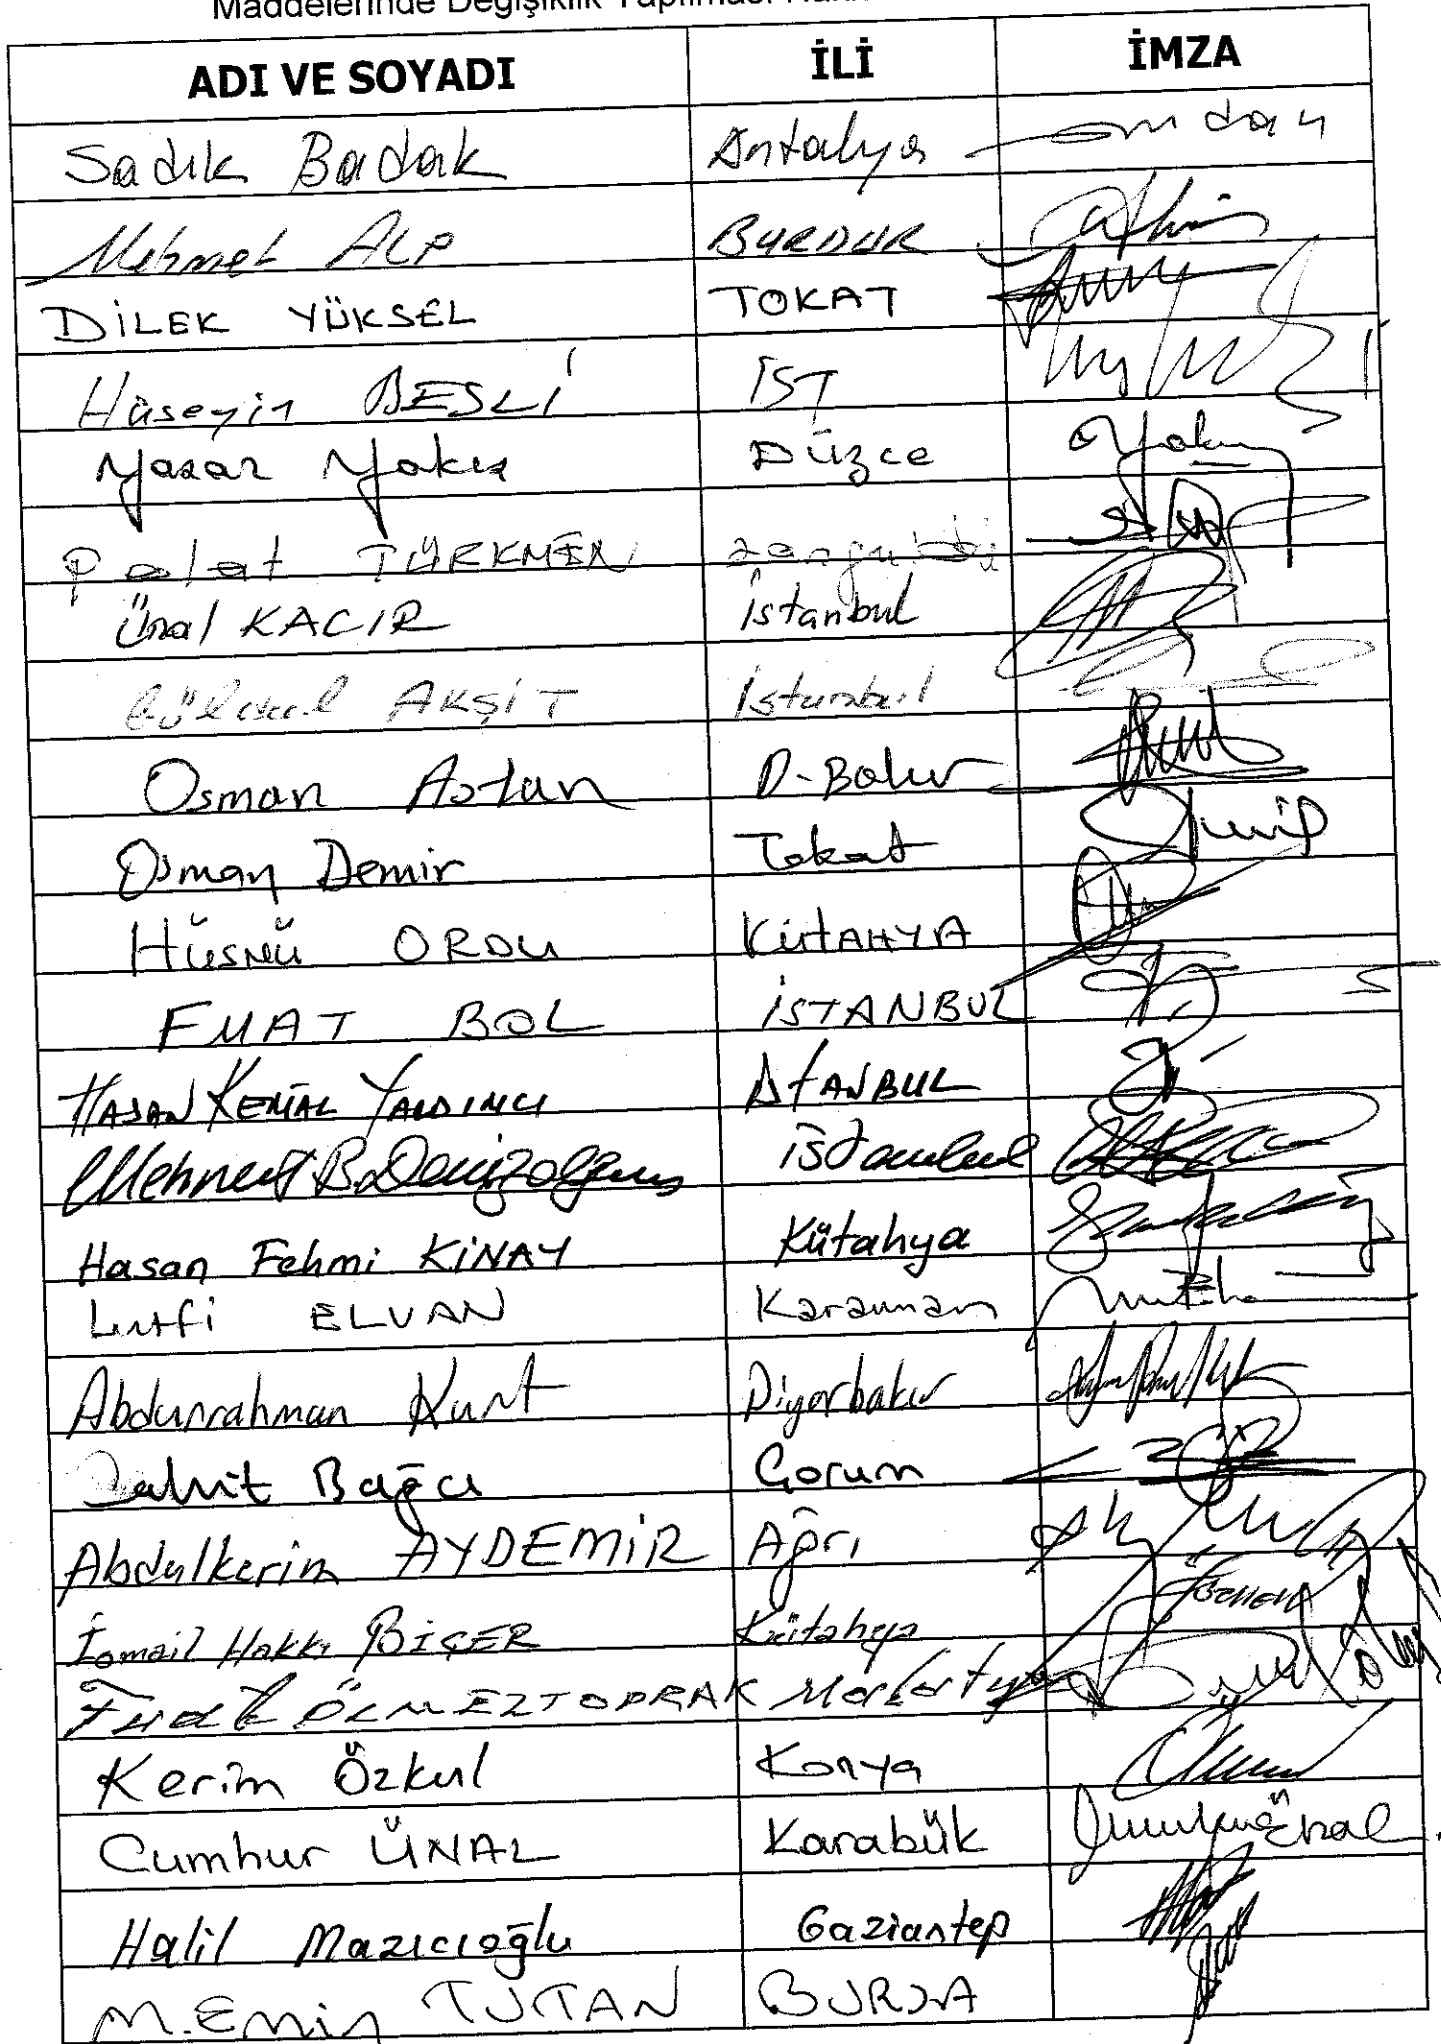 Maddelerinde Değişiklik Yapılması
ADI VE SOYADI İLİ İMZA
Sadık Badak Antalya
Mehmet ALP BURDUR
DİLEK YÜKSEL TOKAT
Hüseyin BESLİ İST
Yaşar Yakış Düzce
Polat TÜRKMEN
Ünal KACIR İstanbul
Güldal AKŞİT İstanbul
Osman Aslan D-Bakır
Osman Demir Tokat
HÜSNÜ ORDU KÜTAHYA
FUAT BOL İSTANBUL
HASAN KEMAL YARDIMCI İSTANBUL
Mehmet B. Denizolgun İstanbul
Hasan Fehmi KİNAY Kütahya
Lutfi ELVAN Karaman
Abdurrahman Kurt Diyarbakır
Cahit Bağcı Çorum
Abdulkerim AYDEMİR Ağrı
İsmail Hakkı BİÇER Kütahya
ÖLMEZTOPRAK
Kerim Özkul Konya
Cumhur ÜNAL Karabük
Halil Mazıcıoğlu Gaziantep
M. Emin TUTAN BURSA